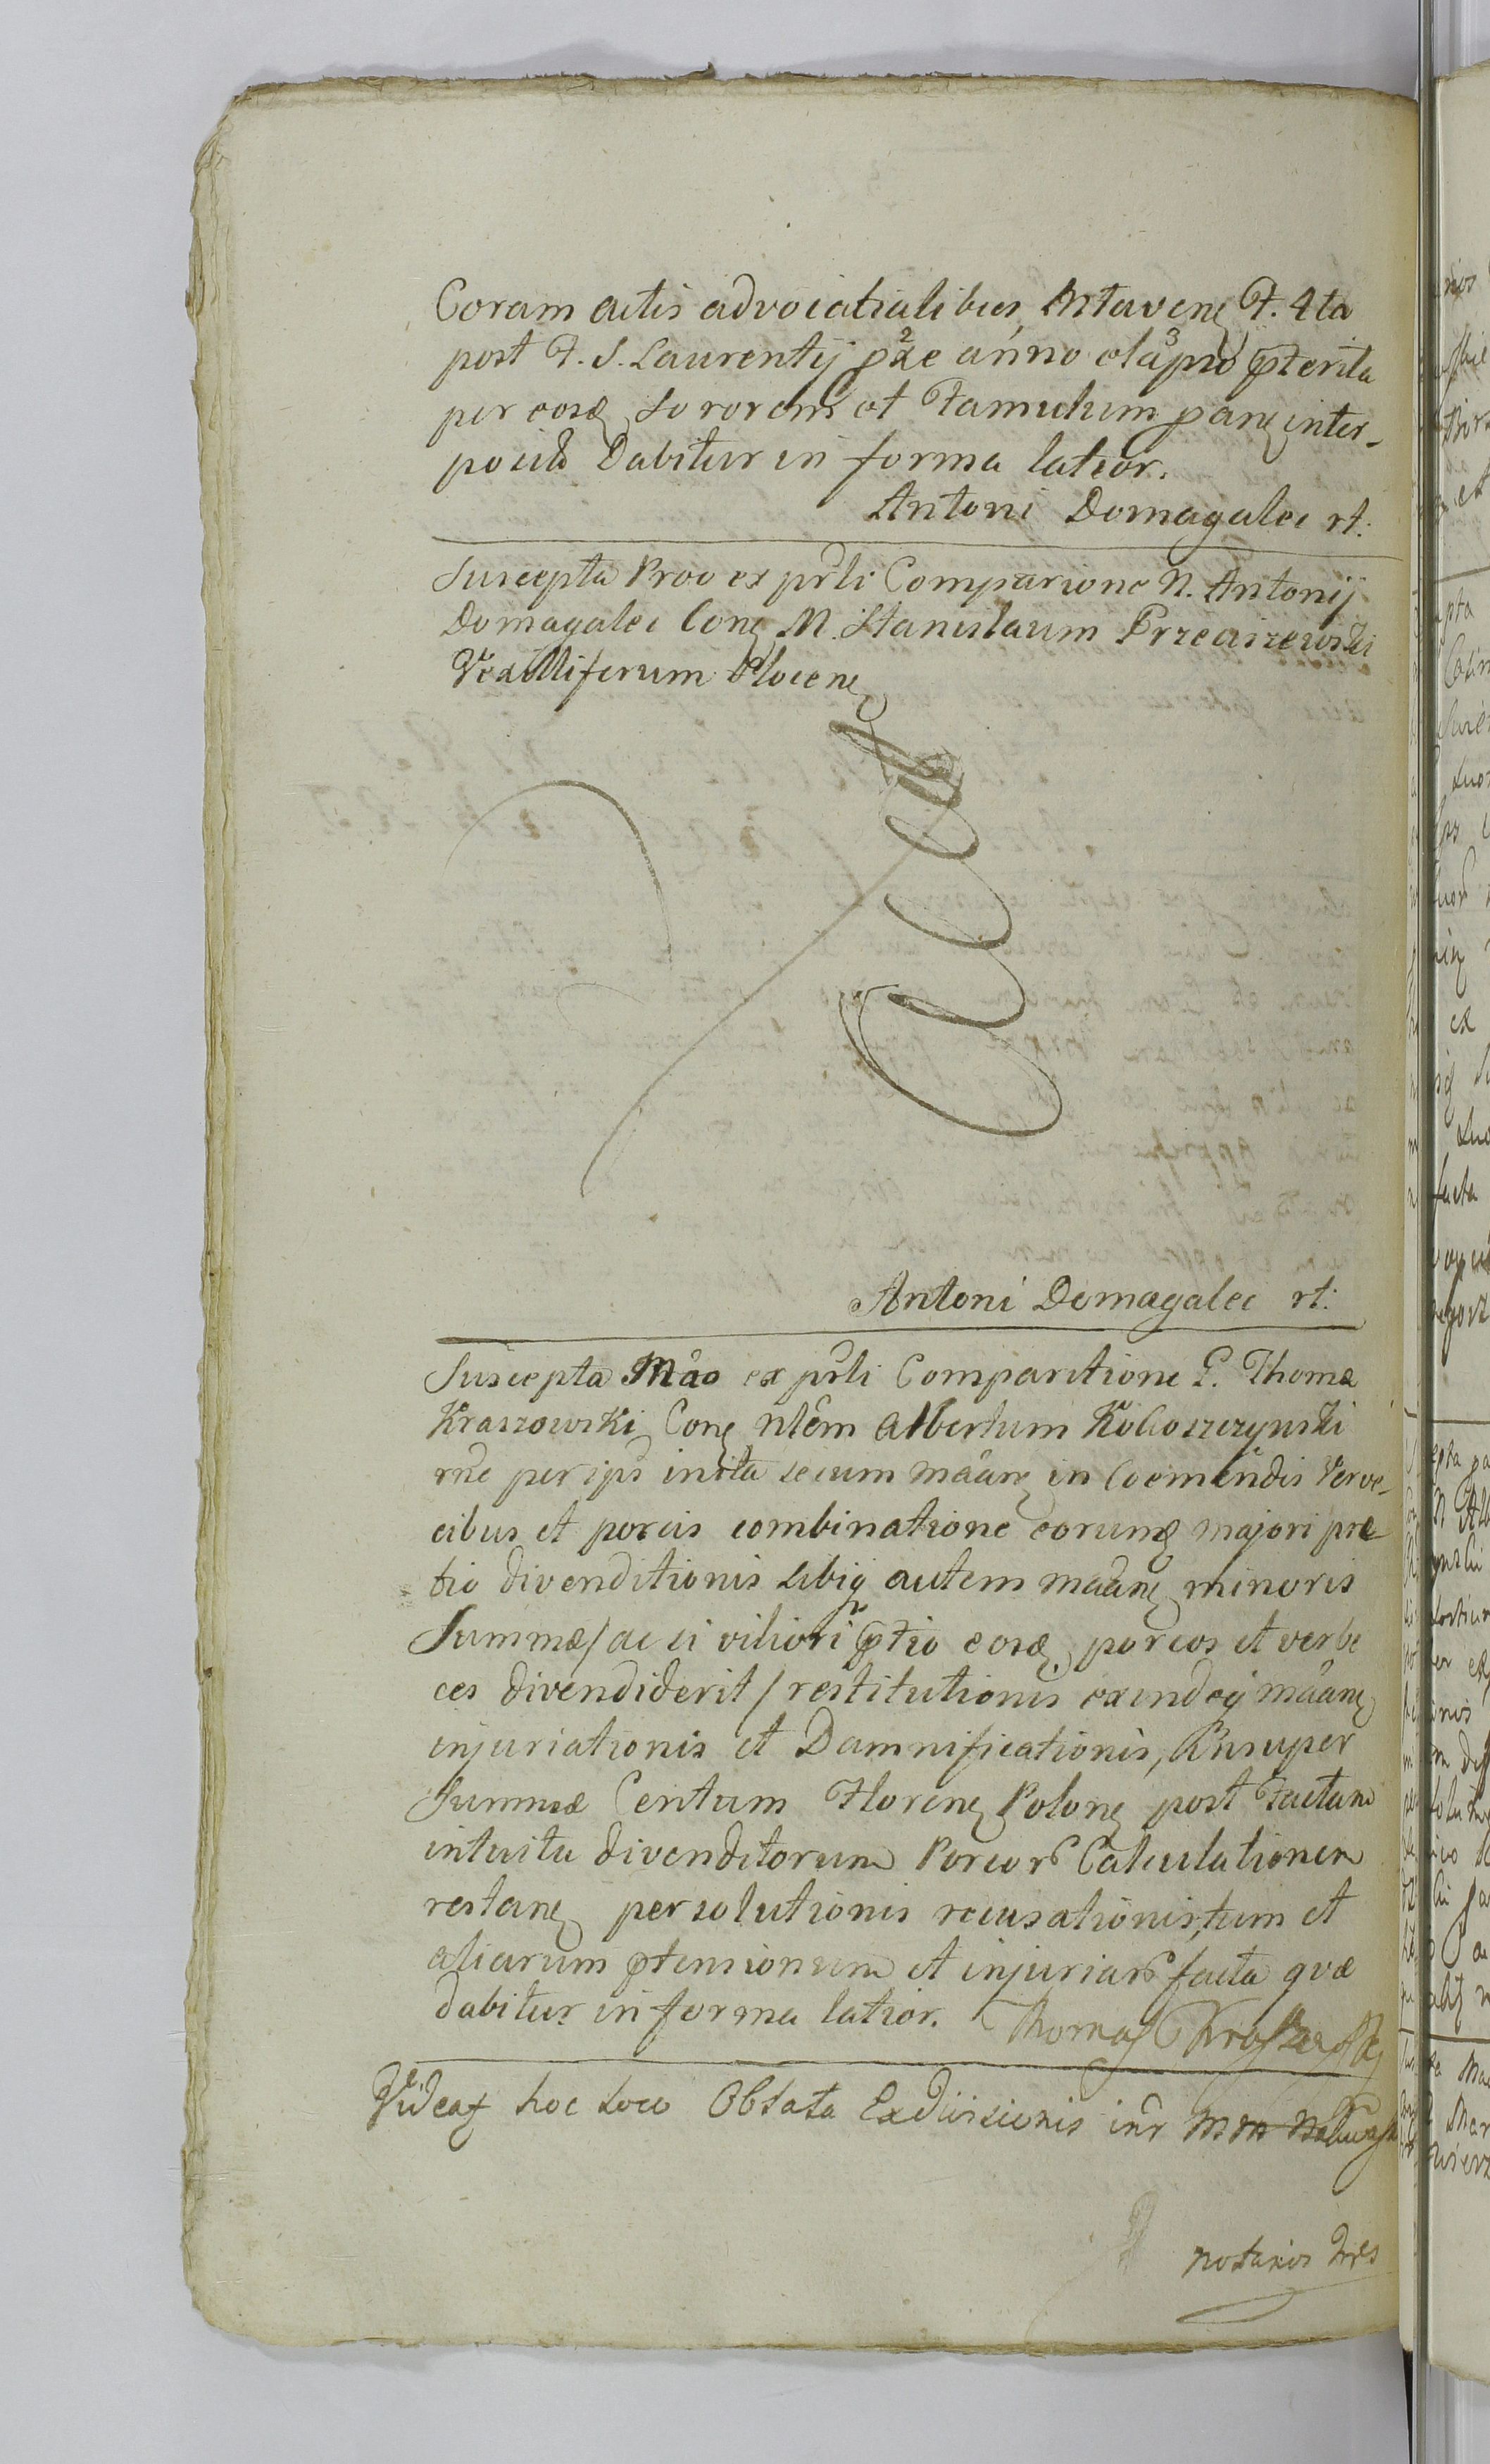 Coram actis advocatialibus Mławenȩ F. 4ta
post F. S. Laurentij pxe anno elapso pterita
per eosdȩ Sororem et Famulum pan̄ȩ inter-
posita Dabitur in forma latior.
Antoni Domagalec rt.
Suscepta Proo ex prli Comparione N. Antonij
Domagalec Conȩ M. Stanislaum Przeciszewski
Vexilliferum Plocenȩ
Antoni Domagalec rt.
Suscepta Mao ex prli Comparitione G. Thoma
Kraszowski Conȩ nlem Albertum Koboszczynski
rne per ips inita secum maanȩ in Coemendis Verve-
cibus et porcis combinatione eorumȩ majori pre
tio divenditionis sibiq autem maanȩ minoris
Summæ/ac si viliori ptio eosȩ porcos et verbe
ces divendiderit/restitutionis exindeq maanȩ
injuriationis et Damnificationis, Insuper
Summæ Centum Florenȩ Polonȩ post Factam
intuitu divenditorum Porcor Calculationem
restanȩ persolutionis recusationis, tum et
aliarum ptensionum et injuriar facta quæ
dabitur in forma latior. Thomas Kraszewski
Videat hoc loco Oblata Exdivisionis inr MM
notarios tres